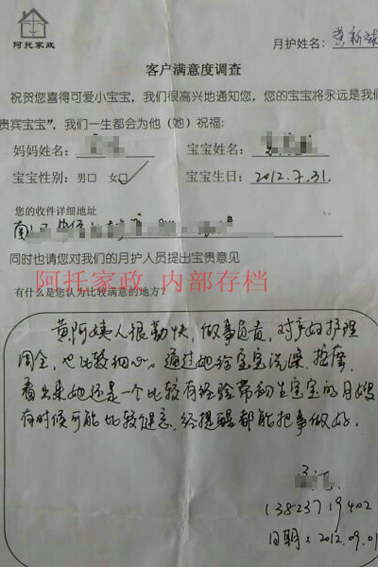 阿托家政
月护姓名：黄新球
客户满意度调查
祝贺您喜得可爱小宝宝，我们很高兴地通知您，您的宝宝将永远是我们
贵宾宝宝”，我们一生都会为他（她）祝福：
妈妈姓名：
宝宝姓名：
宝宝性别：男□ 女□
宝宝生日：2012.7.31.
您的收件详细地址
南
同时也请您对我们的月护人员提出宝贵意见
阿托家政 内部存档
有什么是您认为比较满意的地方？
黄阿姨人很勤快，做事负责，对产妇护理
周全，也比较细心。通过她给宝宝洗澡、抚摩，
看出来她还是一个比较有经验带初生宝宝的月嫂
有时候可能比较健忘，经提醒都能把事做好。
13823719402
日期：2012.09.01